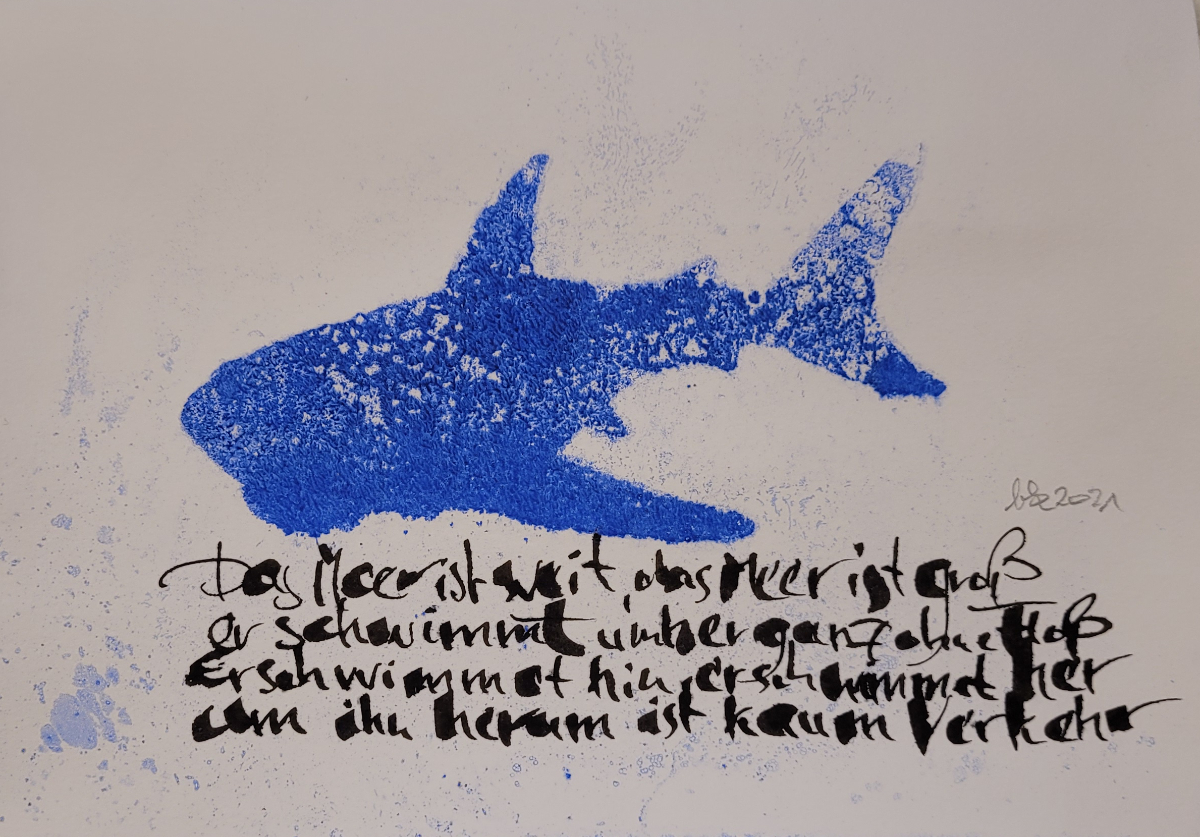 2021
Das Meer ist weit, das Meer ist groß
er schwimmt umher ganz ohne Floß
Er schwimmt hin, er schwimmt her
um ihn herum ist kaum Verkehr